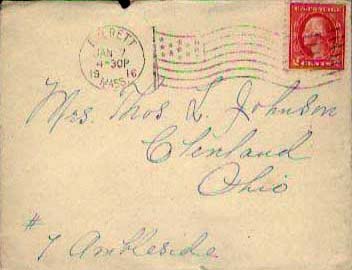 EVERETT
JAN 7
4-30P
19 16
MASS.
U.S. POSTAGE
2 CENTS 2
Mrs. Thos L. Johnson
Cleveland
Ohio
#
7 Ambleside